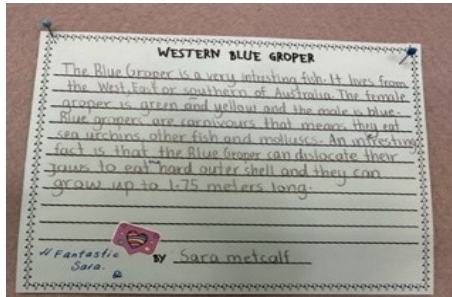 WESTERN BLUE GROPER
The Blue Groper is a very intresting fish. It loves from
the West, East or southern of Australia. The female
groper is green and yellow and the male is blue.
Blue gropers are carnivours that means they eat
sea urchins, other fish and molluscs. An intresting
fact is that the Blue Groper can dislocate their
jaws to eat the hard outer shell and they can
grow up to 1.75 meters long.
Fantastic
Sara.
BY Sara metcalf